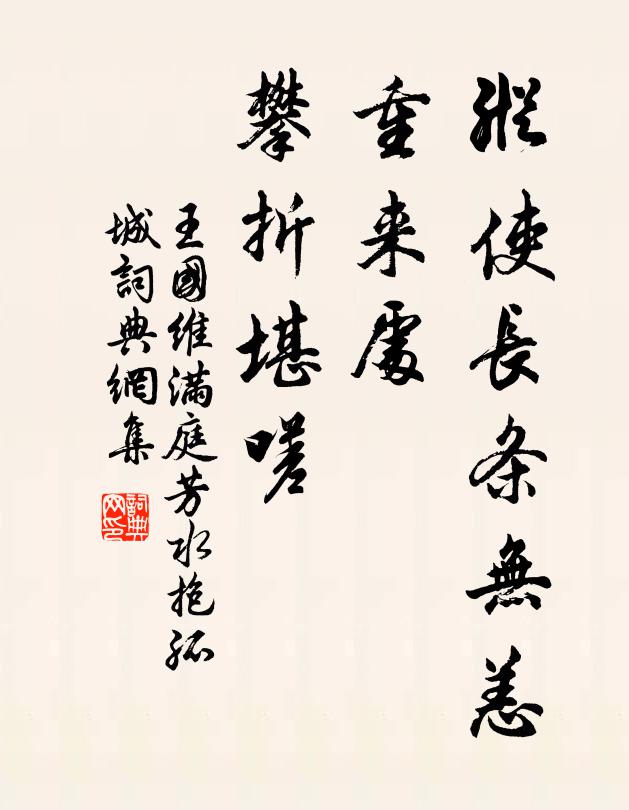 縱使長条無恙
重来處
攀折堪嗟
王國維滿庭芳水抱孤
城詞典網集
詞典网印